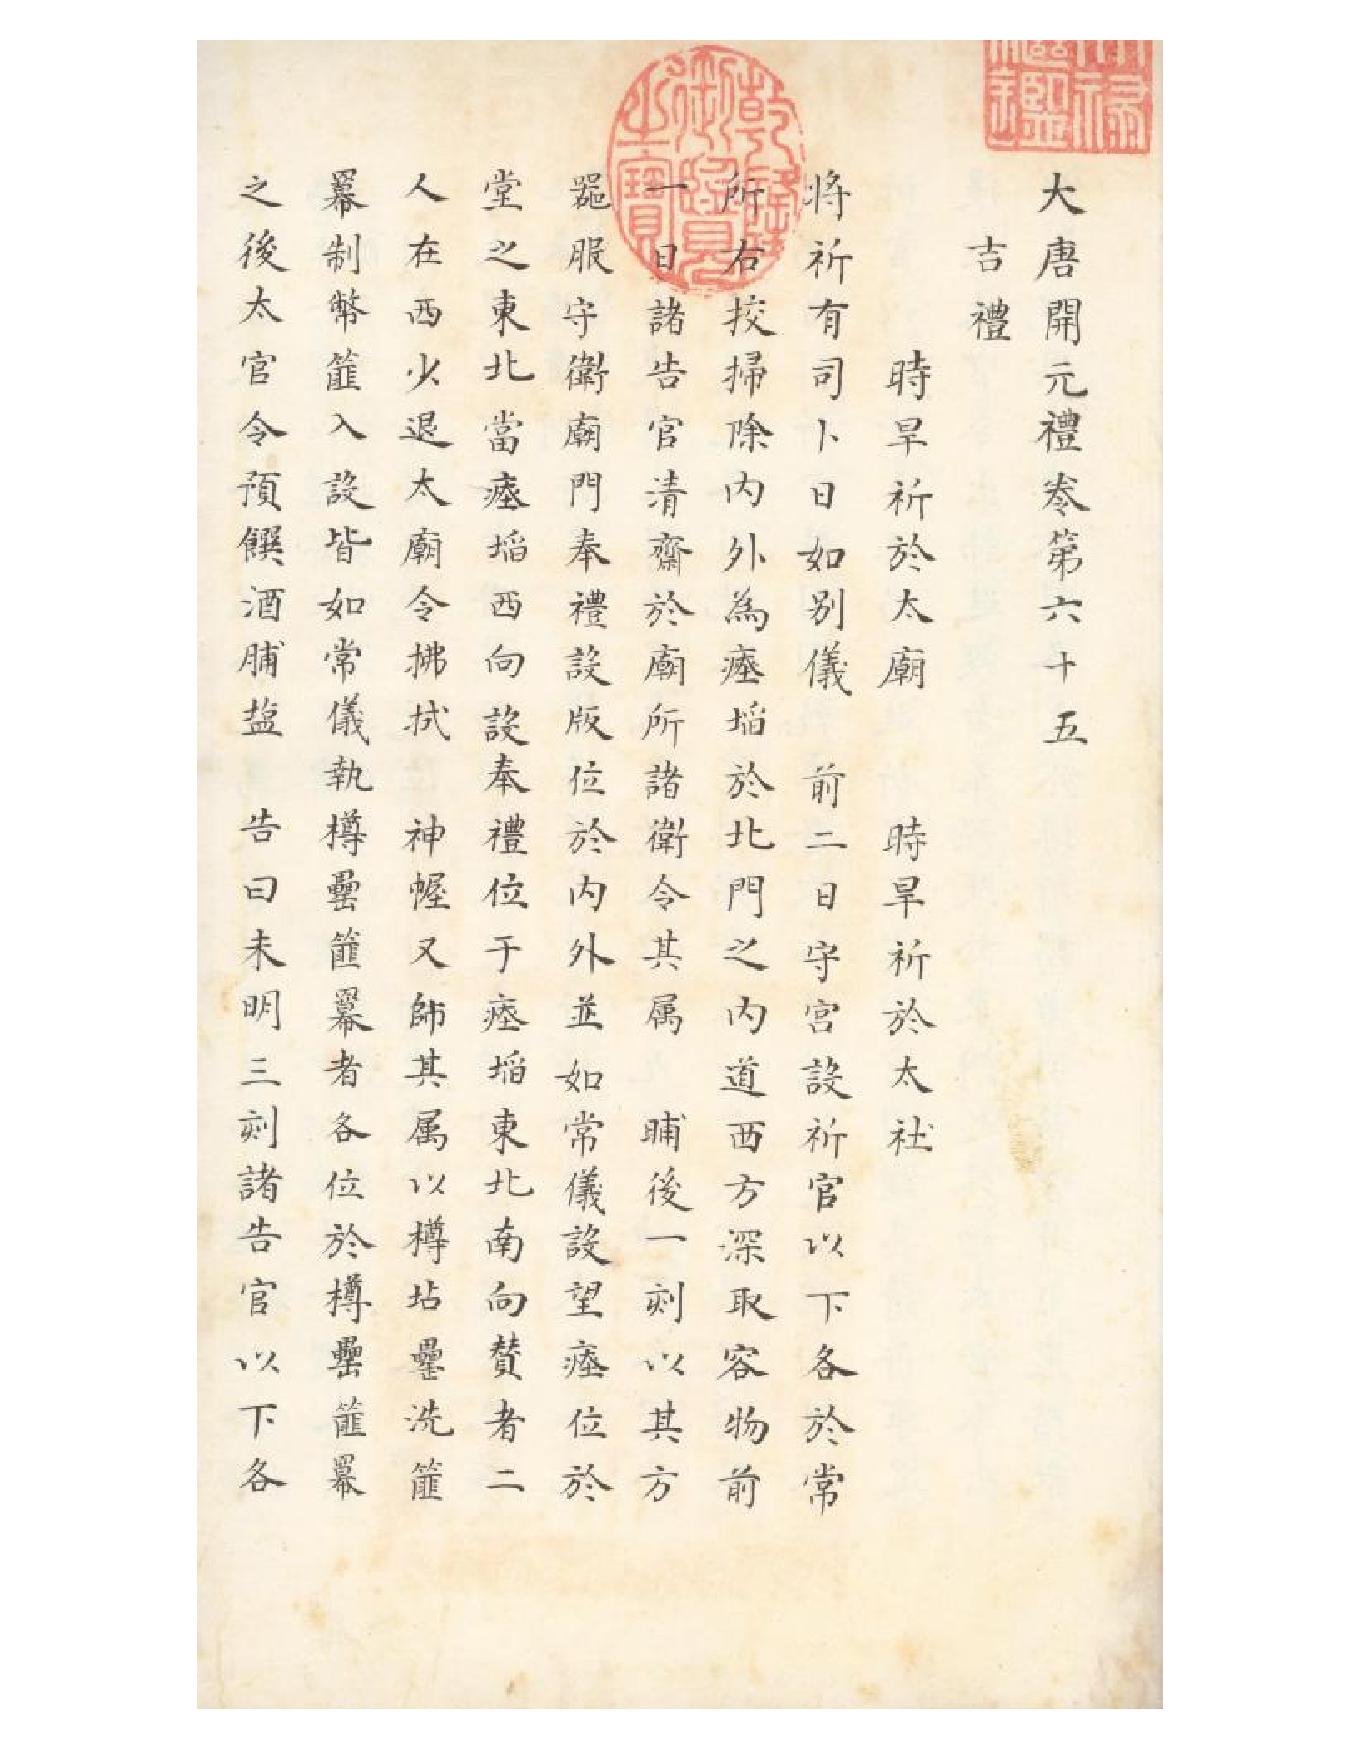 大唐開元禮卷第六十五
吉禮
時旱祈於太廟 時旱祈於太社
將祈有司卜日如别儀 前二日守宫設祈官以下各於常
所右挍掃除内外為瘞埳於北門之内道西方深取容物前
一日諸告官清齋於廟所諸衛令其属 晡後一刻以其方
器服守衛廟門奉禮設版位於内外並如常儀設望瘞位於
堂之東北當瘞埳西向設奉禮位于瘞埳東北南向賛者二
人在西少退太廟令拂拭 神幄又帥其属以樽坫罍洗篚
羃制幣篚入設皆如常儀執樽罍篚羃者各位於樽罍篚羃
之後太官令預饌酒脯盐 告曰未明三刻諸告官以下各
乾隆御覽之寶